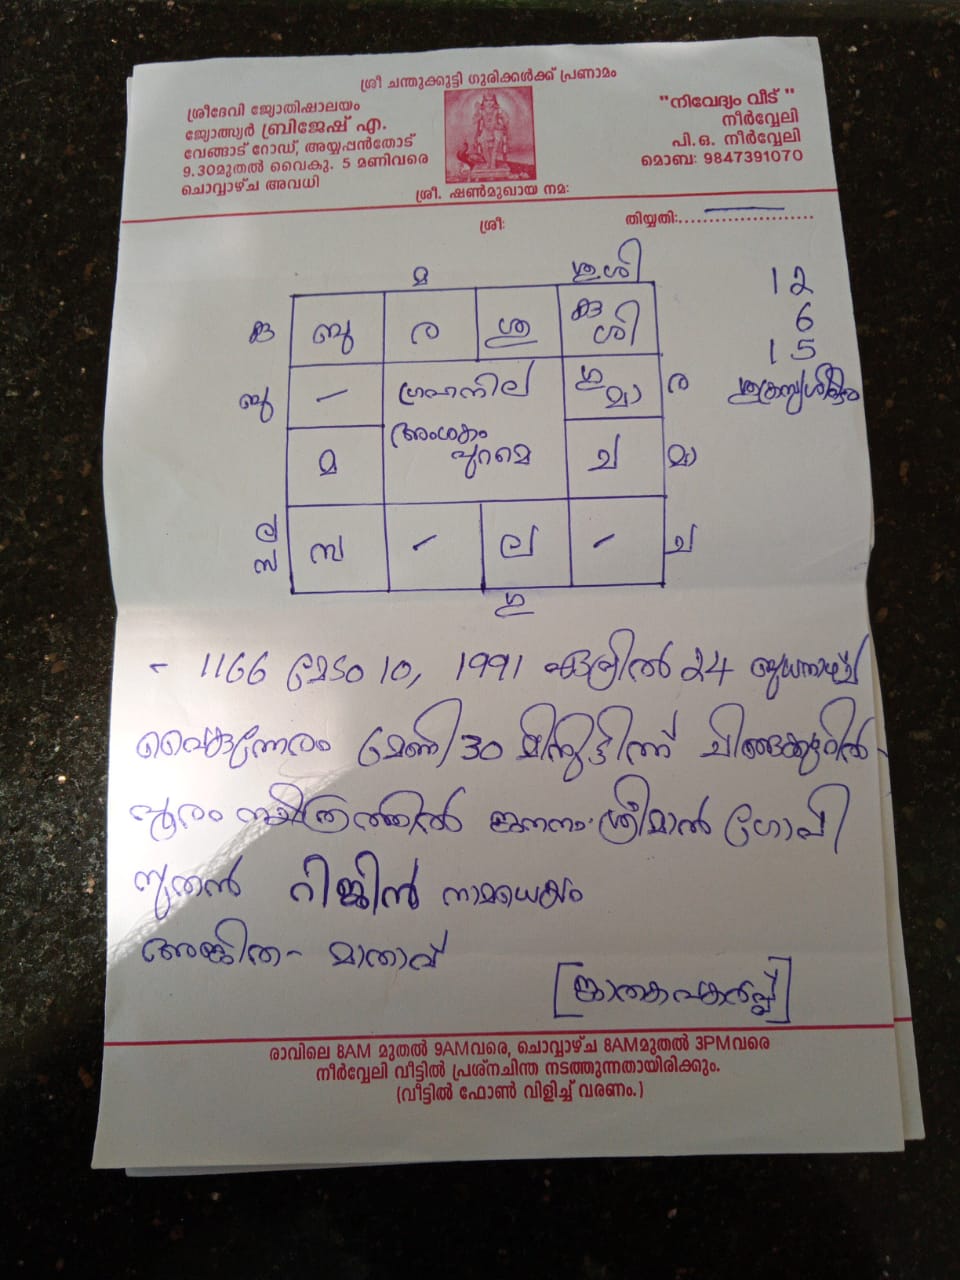 ശ്രീ ചന്തുക്കുട്ടി ഗുരിക്കൾക്ക് പ്രണാമം
ശ്രീദേവി ജ്യോതിഷാലയം
ജ്യോത്സ്യർ ബ്രിജേഷ് എ.
വേങ്ങാട് റോഡ്, അയ്യപ്പൻതോട്
9.30മുതൽ വൈകു. 5 മണിവരെ
ചൊവ്വാഴ്ച അവധി
"നിവേദ്യം വീട് "
നീർവ്വേലി
പി.ഒ. നീർവ്വേലി
മൊബ: 9847391070
ശ്രീ. ഷൺമുഖായ നമ:
ശ്രീ:
തിയ്യതി:......................
മ
കു ബു ര
ശി
ബു - ഗ്രഹനില മാ ര
അംശകം
മ പുറമെ ച മാ
ല
സ സ - ല - ച
12
6
15
- 1166 മേടം 10, 1991 ഏപ്രിൽ 24 ബുധനാഴ്ച
വൈകുന്നേരം മണി 30 മിനുട്ടിന് ചിങ്ങക്കൂറിൽ
പൂരം നക്ഷത്രത്തിൽ ജനനം. ശ്രീമാൻ ഗോപി
സുതൻ റിജിൻ നാമധേയം
അജിത - മാതാവ്
[ജാതകപകർപ്പ്]
രാവിലെ 8AM മുതൽ 9AMവരെ, ചൊവ്വാഴ്ച 8AMമുതൽ 3PMവരെ
നീർവ്വേലി വീട്ടിൽ പ്രശ്നചിന്ത നടത്തുന്നതായിരിക്കും.
(വീട്ടിൽ ഫോൺ വിളിച്ച് വരണം.)